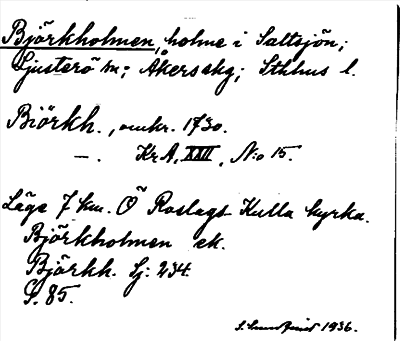 Björkholmen, holme i Saltsjön;
Ljusterö sn; Åkers skg; Sthlms l.
Biörkh., omkr. 1730.
—. KrA, XXII, N:o 15.
Läge 7 km. Ö Roslags-Kulla kyrka.
Björkholmen ek.
Björkh. Lj: 234.
S. 85.
1936.